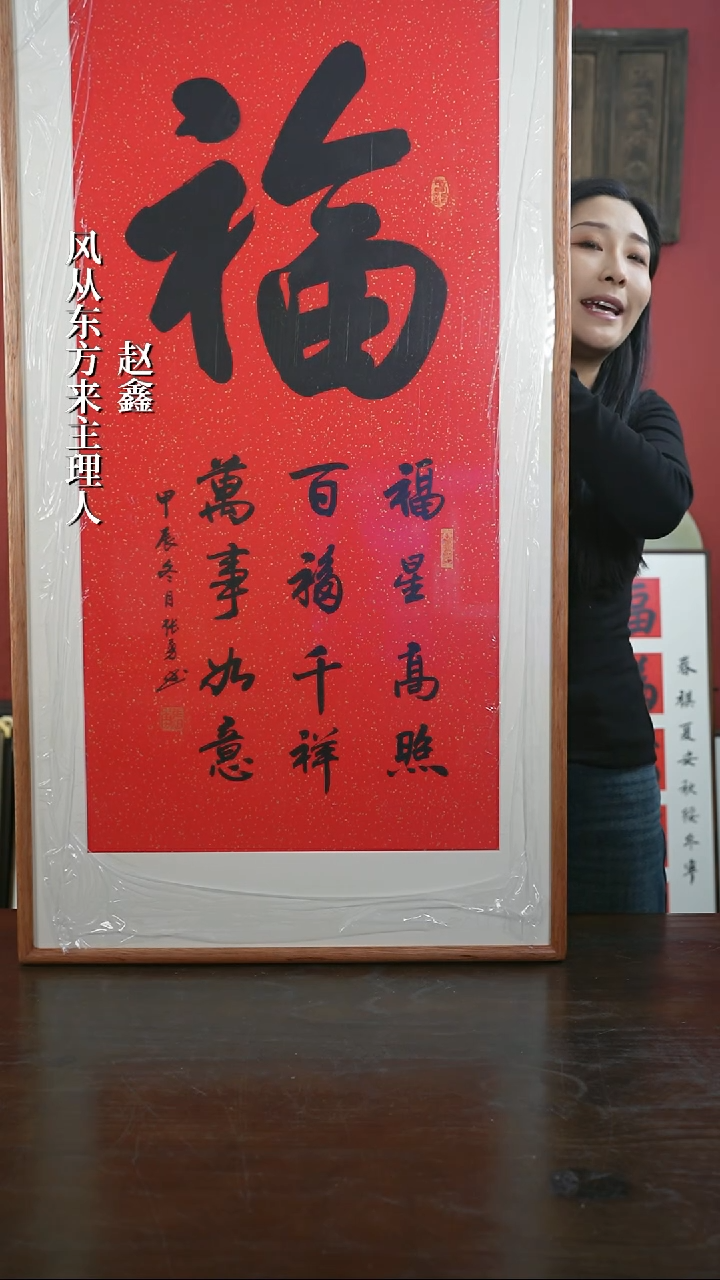 福
福星高照
百福千祥
萬事如意
甲辰冬月张勇
赵鑫
风从东方来主理人
福
福
春祺夏安秋绥冬宁